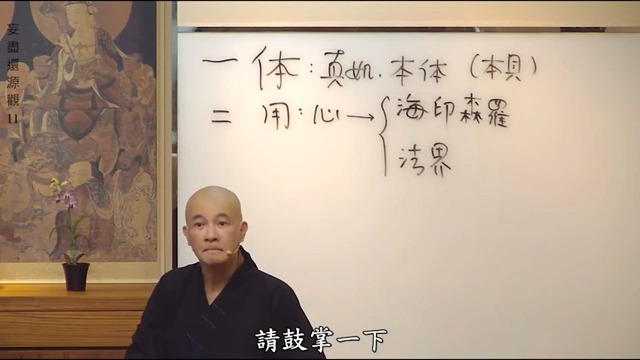 妄盡還源觀11
一 体：真如．本体（本具）
二 用：心→海印森羅
法界
請鼓掌一下